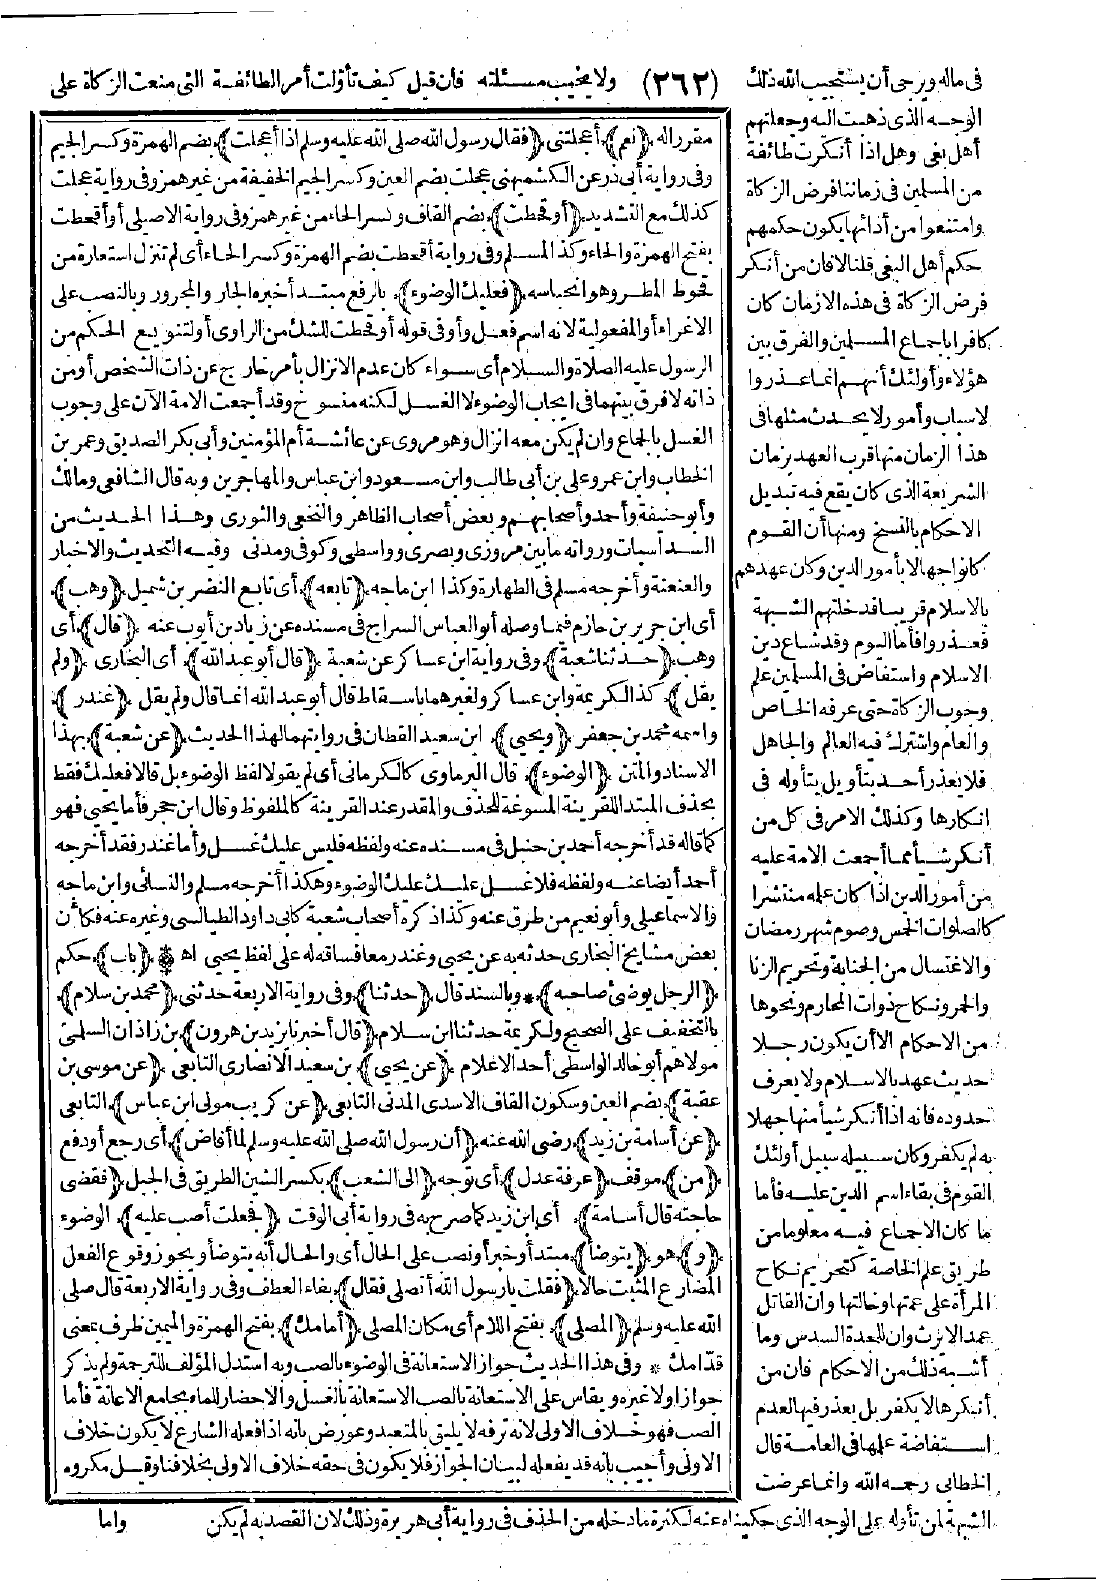 (٢٦٢)
ولا يخيب مسئلته فان قيل كيف تأولت أمر الطائفة التى منعت الزكاة على
فى ماله ويرجى أن يستجيب الله ذلك
الوجه الذى ذهبت اليه وجعلتهم
أهل بغى وهل اذا أنكرت طائفة
من المسلمين فى زماننا فرض الزكاة
وامتنعوا من أدائها يكون حكمهم
حكم أهل البغى قلنا لا فان من أنكر
فرض الزكاة فى هذه الازمان كان
كافرا باجماع المسلمين والفرق بين
هؤلاء وأولئك أنهم انما عذروا
لاسباب وأمور لا يحدث مثلها فى
هذا الزمان منها قرب العهد بزمان
الشريعة الذى كان يقع فيه تبديل
الاحكام بالنسخ ومنها أن القوم
كانوا جهالا بأمور الدين وكان عهدهم
بالاسلام قريبا فدخلتهم الشبهة
فعذروا فأما اليوم وقد شاع دين
الاسلام واستفاض فى المسلمين علم
وجوب الزكاة حتى عرفه الخاص
والعام واشترك فيه العالم والجاهل
فلا يعذر أحد بتأويل يتأوله فى
انكارها وكذلك الامر فى كل من
أنكر شيأ مما أجمعت الامة عليه
من أمور الدين اذا كان علمه منتشرا
كالصلوات الخمس وصوم شهر رمضان
والاغتسال من الجنابة وتحريم الزنا
والخمر ونكاح ذوات المحارم ونحوها
من الاحكام الا أن يكون رجلا
حديث عهد بالاسلام ولا يعرف
حدوده فانه اذا أنكر شيأ منها جهلا
به لم يكفر وكان سبيله سبيل أولئك
القوم فى بقاء اسم الدين عليه فأما
ما كان الاجماع فيه معلوما من
طريق علم الخاصة كتحريم نكاح
المرأة على عمتها وخالتها وان القاتل
عمد الايرث وان للجدة السدس وما
أشبه ذلك من الاحكام فان من
أنكرها لا يكفر بل يعذر فيها لعدم
استفاضة علمها فى العامة قال
الخطابى رحمه الله وانما عرضت
الشبهة لمن تأوله على الوجه الذى حكيناه عنه لكثرة ما دخله من الحذف فى رواية أبى هريرة وذلك لان القصد به لم يكن
مقرر اله ﴿نعم﴾ أعجلتنى ﴿فقال رسول الله صلى الله عليه وسلم اذا أعجلت﴾ بضم الهمزة وكسر الجيم
وفى رواية أبى ذر عن الكشميهنى عجلت بضم العين وكسر الجيم الخفيفة من غير همز وفى رواية عجلت
كذلك مع التشديد ﴿أو قحطت﴾ بضم القاف وكسر الحاء من غير همز وفى رواية الاصيلى أو أقحطت
بفتح الهمزة والحاء وكذا لمسلم وفى رواية أقحطت بضم الهمزة وكسر الحاء أى لم تنزل استعارة من
قحوط المطر وهو انحباسه ﴿فعليك الوضوء﴾ بالرفع مبتدأ خبره الجار والمجرور وبالنصب على
الاغراء أو المفعولية لانه اسم فعل وأو فى قوله أو قحطت للشك من الراوى أو لتنويع الحكم من
الرسول عليه الصلاة والسلام أى سواء كان عدم الانزال بأمر خارج عن ذات الشخص أو من
ذاته لا فرق بينهما فى ايجاب الوضوء لا الغسل لكنه منسوخ وقد أجمعت الامة الآن على وجوب
الغسل بالجماع وان لم يكن معه انزال وهو مروى عن عائشة أم المؤمنين وأبى بكر الصديق وعمر بن
الخطاب وابن عمر وعلى بن أبى طالب وابن مسعود وابن عباس والمهاجرين وبه قال الشافعى ومالك
وأبو حنيفة وأحمد وأصحابهم وبعض أصحاب الظاهر والنخعى والثورى وهذا الحديث من
السداسيات ورواته ما بين مروزى وبصرى وواسطى وكوفى ومدنى وفيه التحديث والاخبار
والعنعنة وأخرجه مسلم فى الطهارة وكذا ابن ماجه ﴿تابعه﴾ أى تابع النضر بن شميل ﴿وهب﴾
أى ابن جرير بن حازم فيما وصله أبو العباس السراج فى مسنده عن زياد بن أيوب عنه ﴿قال﴾ أى
وهب ﴿حدثنا شعبة﴾ وفى رواية ابن عساكر عن شعبة ﴿قال أبو عبد الله﴾ أى البخارى ﴿ولم
يقل﴾ كذا لكريمة وابن عساكر ولغيرهما باسقاط قال أبو عبد الله انما قال ولم يقل ﴿غندر﴾
واسمه محمد بن جعفر ﴿ويحيى﴾ ابن سعيد القطان فى روايتهما لهذا الحديث ﴿عن شعبة﴾ بهذا
الاسناد والمتن ﴿الوضوء﴾ قال البرماوى كالكرمانى أى لم يقولا لفظ الوضوء بل قالا فعليك فقط
بحذف المبتدا للقرينة المسوغة للحذف والمقدر عند القرينة كالملفوظ وقال ابن حجر فأما يحيى فهو
كما قاله قد أخرجه أحمد بن حنبل فى مسنده عنه ولفظه فليس عليك غسل وأما غندر فقد أخرجه
أحمد أيضا عنه ولفظه فلا غسل عليك عليك الوضوء وهكذا أخرجه مسلم والنسائى وابن ماجه
والاسماعيلى وأبو نعيم من طرق عنه وكذا ذكره أصحاب شعبة كابى داود الطيالسى وغيره عنه فكأن
بعض مشايخ البخارى حدثه به عن يحيى وغندر معا فساقه له على لفظ يحيى اه * ﴿باب﴾ حكم
﴿الرجل يوضئ صاحبه﴾ * وبالسند قال ﴿حدثنا﴾ وفى رواية الاربعة حدثنى ﴿محمد بن سلام﴾
بالتخفيف على الصحيح ولكريمة حدثنا ابن سلام ﴿قال أخبرنا يزيد بن هرون﴾ بن زاذان السلمى
مولاهم أبو خالد الواسطى أحد الاعلام ﴿عن يحيى﴾ بن سعيد الانصارى التابعى ﴿عن موسى بن
عقبة﴾ بضم العين وسكون القاف الاسدى المدنى التابعى ﴿عن كريب مولى ابن عباس﴾ التابعى
﴿عن أسامة بن زيد﴾ رضى الله عنه ﴿أن رسول الله صلى الله عليه وسلم لما أفاض﴾ أى رجع أو دفع
﴿من﴾ موقف ﴿عرفة عدل﴾ أى توجه ﴿الى الشعب﴾ بكسر الشين الطريق فى الجبل ﴿فقضى
حاجته قال أسامة﴾ أى ابن زيد كما صرح به فى رواية أبى الوقت ﴿فجعلت أصب عليه﴾ الوضوء
﴿و﴾ هو ﴿يتوضأ﴾ مبتدأ وخبر أو نصب على الحال أى والحال أنه يتوضأ ويجوز وقوع الفعل
المضارع المثبت حالا ﴿فقلت يا رسول الله أتصلى فقال﴾ بفاء العطف وفى رواية الاربعة قال صلى
الله عليه وسلم ﴿المصلى﴾ بفتح اللام أى مكان المصلى ﴿أمامك﴾ بفتح الهمزة والميمين ظرف بمعنى
قدامك * وفى هذا الحديث جواز الاستعانة فى الوضوء بالصب وبه استدل المؤلف للترجمة ولم يذكر
جوازا ولا غيره ويقاس على الاستعانة بالصب الاستعانة بالغسل والاحضار للماء بجامع الاعانة فأما
الصب فهو خلاف الاولى لانه ترفه لا يليق بالمتعبد وعورض بانه اذا فعله الشارع لا يكون خلاف
الاولى وأجيب بانه قد يفعله لبيان الجواز فلا يكون فى حقه خلاف الاولى بخلافنا وقيل مكروه
واما